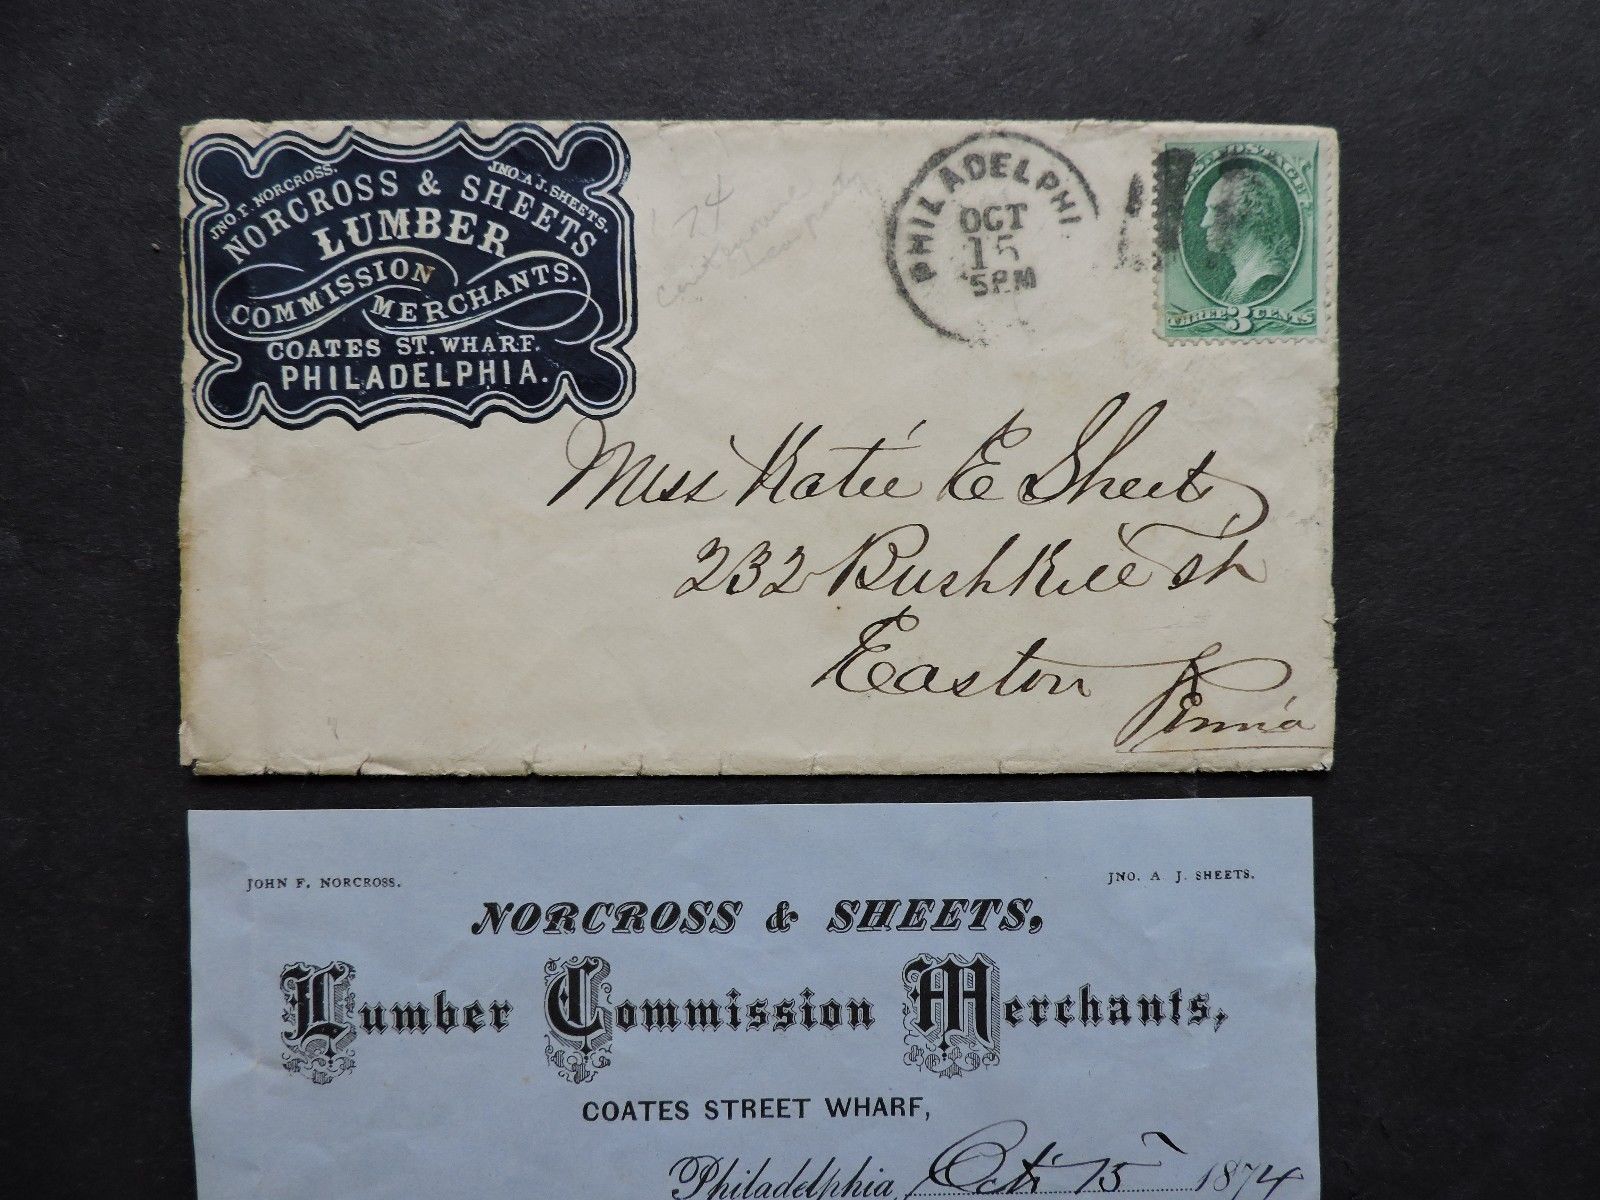 JNO. F. NORCROSS.
JNO. A. J. SHEETS.
NORCROSS & SHEETS
LUMBER
COMMISSION
MERCHANTS.
COATES ST. WHARF.
PHILADELPHIA.
'74
PHILADELPHI
OCT
15
5PM
THREE 3 CENTS
Miss Katie E Sheets
232 Bushkill St
Easton
Penn'a
JOHN F. NORCROSS.
JNO. A. J. SHEETS.
NORCROSS & SHEETS,
Lumber Commission Merchants,
COATES STREET WHARF,
Philadelphia, Oct. 15 1874